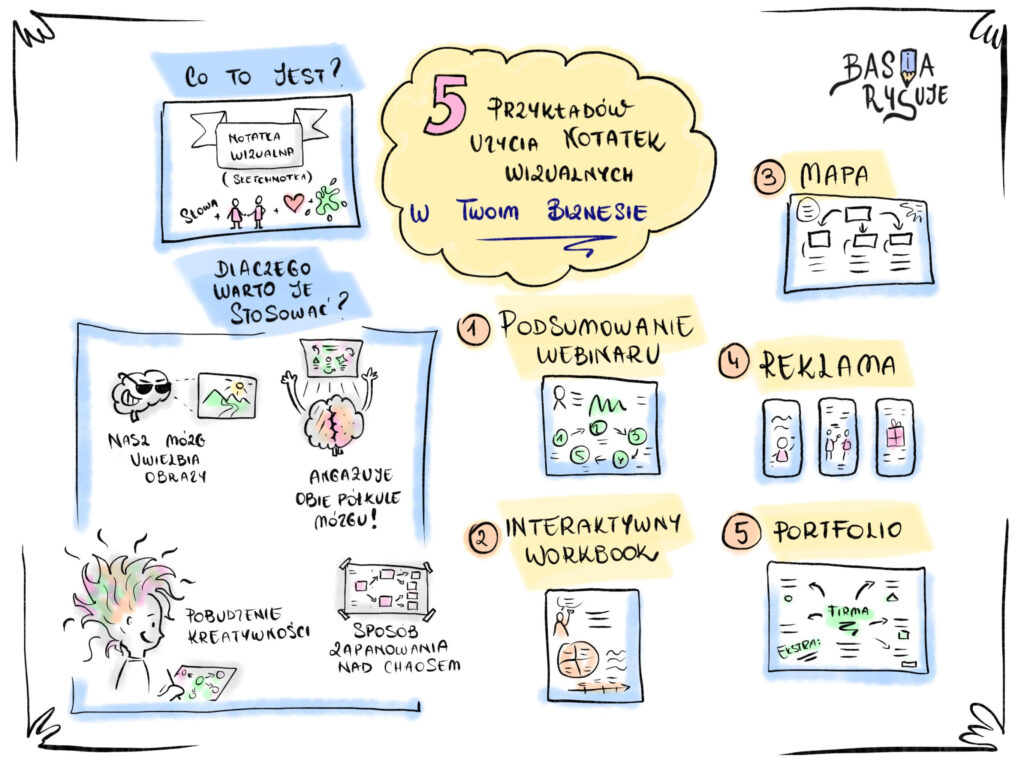 CO TO JEST?
NOTATKA
WIZUALNA
(SKETCHNOTKA)
SŁOWA + + +
DLACZEGO
WARTO JE
STOSOWAĆ?
NASZ MÓZG
UWIELBIA
OBRAZY
ANGAŻUJE
OBIE PÓŁKULE
MÓZGU!
POBUDZENIE
KREATYWNOŚCI
SPOSÓB
ZAPANOWANIA
NAD CHAOSEM
5 PRZYKŁADÓW
UŻYCIA NOTATEK
WIZUALNYCH
W TWOIM BIZNESIE
BASIA
RYSUJE
1 PODSUMOWANIE
WEBINARU
1 2 3
5 4
2 INTERAKTYWNY
WORKBOOK
3 MAPA
4 REKLAMA
5 PORTFOLIO
FIRMA
EKSTRA: